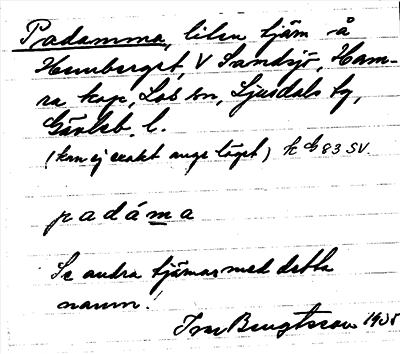 Padamma, liten tjärn å
Hemberget, V Sandsjö, Ham-
ra kap, Los sn, Ljusdals tg,
Gävleb. l.
(kan ej exakt ange läget) k G 83 SV.
padáma
Se andra tjärnar med detta
namn!
Ivar Bengtsson 1935